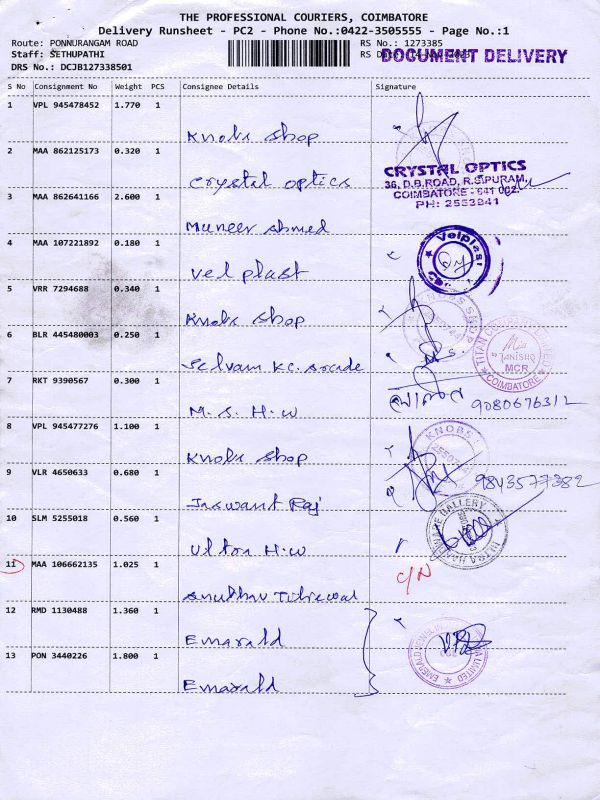 THE PROFESSIONAL COURIERS, COIMBATORE
Delivery Runsheet - PC2 - Phone No.:0422-3505555 - Page No.:1
Route: PONNURANGAM ROAD
RS No.: 1273385
Staff: SETHUPATHI
RS
DOCUMENT DELIVERY
DRS No.: DCJB127338501
S No Consignment No Weight PCS Consignee Details Signature
1 VPL 945478452 1.770 1
Knobs shop
2 MAA 862125173 0.320 1
Crystal optics
CRYSTAL OPTICS
36, D.B.ROAD, R.S.PURAM,
COIMBATORE - 641 002.
PH: 2553841
3 MAA 862641166 2.600 1
Muneer Ahmed
4 MAA 107221892 0.180 1
Vel plast
Velplast
5 VRR 7294688 0.340 1
Knobs shop
KNOBS SHOP
6 BLR 445480003 0.250 1
Selvam K.C. arcade
TITAN
TANISHQ
MCR
COIMBATORE
7 RKT 9390567 0.300 1
M.S. H.W
9080676312
8 VPL 945477276 1.100 1
Knobs shop
KNOBS
9 VLR 4650633 0.680 1
Jaswant Raj
9843577382
10 SLM 5255018 0.560 1
Ultra H.W
ULTRA HARDWARE GALLERY
11 MAA 106662135 1.025 1
C/N
12 RMD 1130488 1.360 1
Emarald
13 PON 3440226 1.800 1
Emarald
EMERALD JEWEL
LIMITED